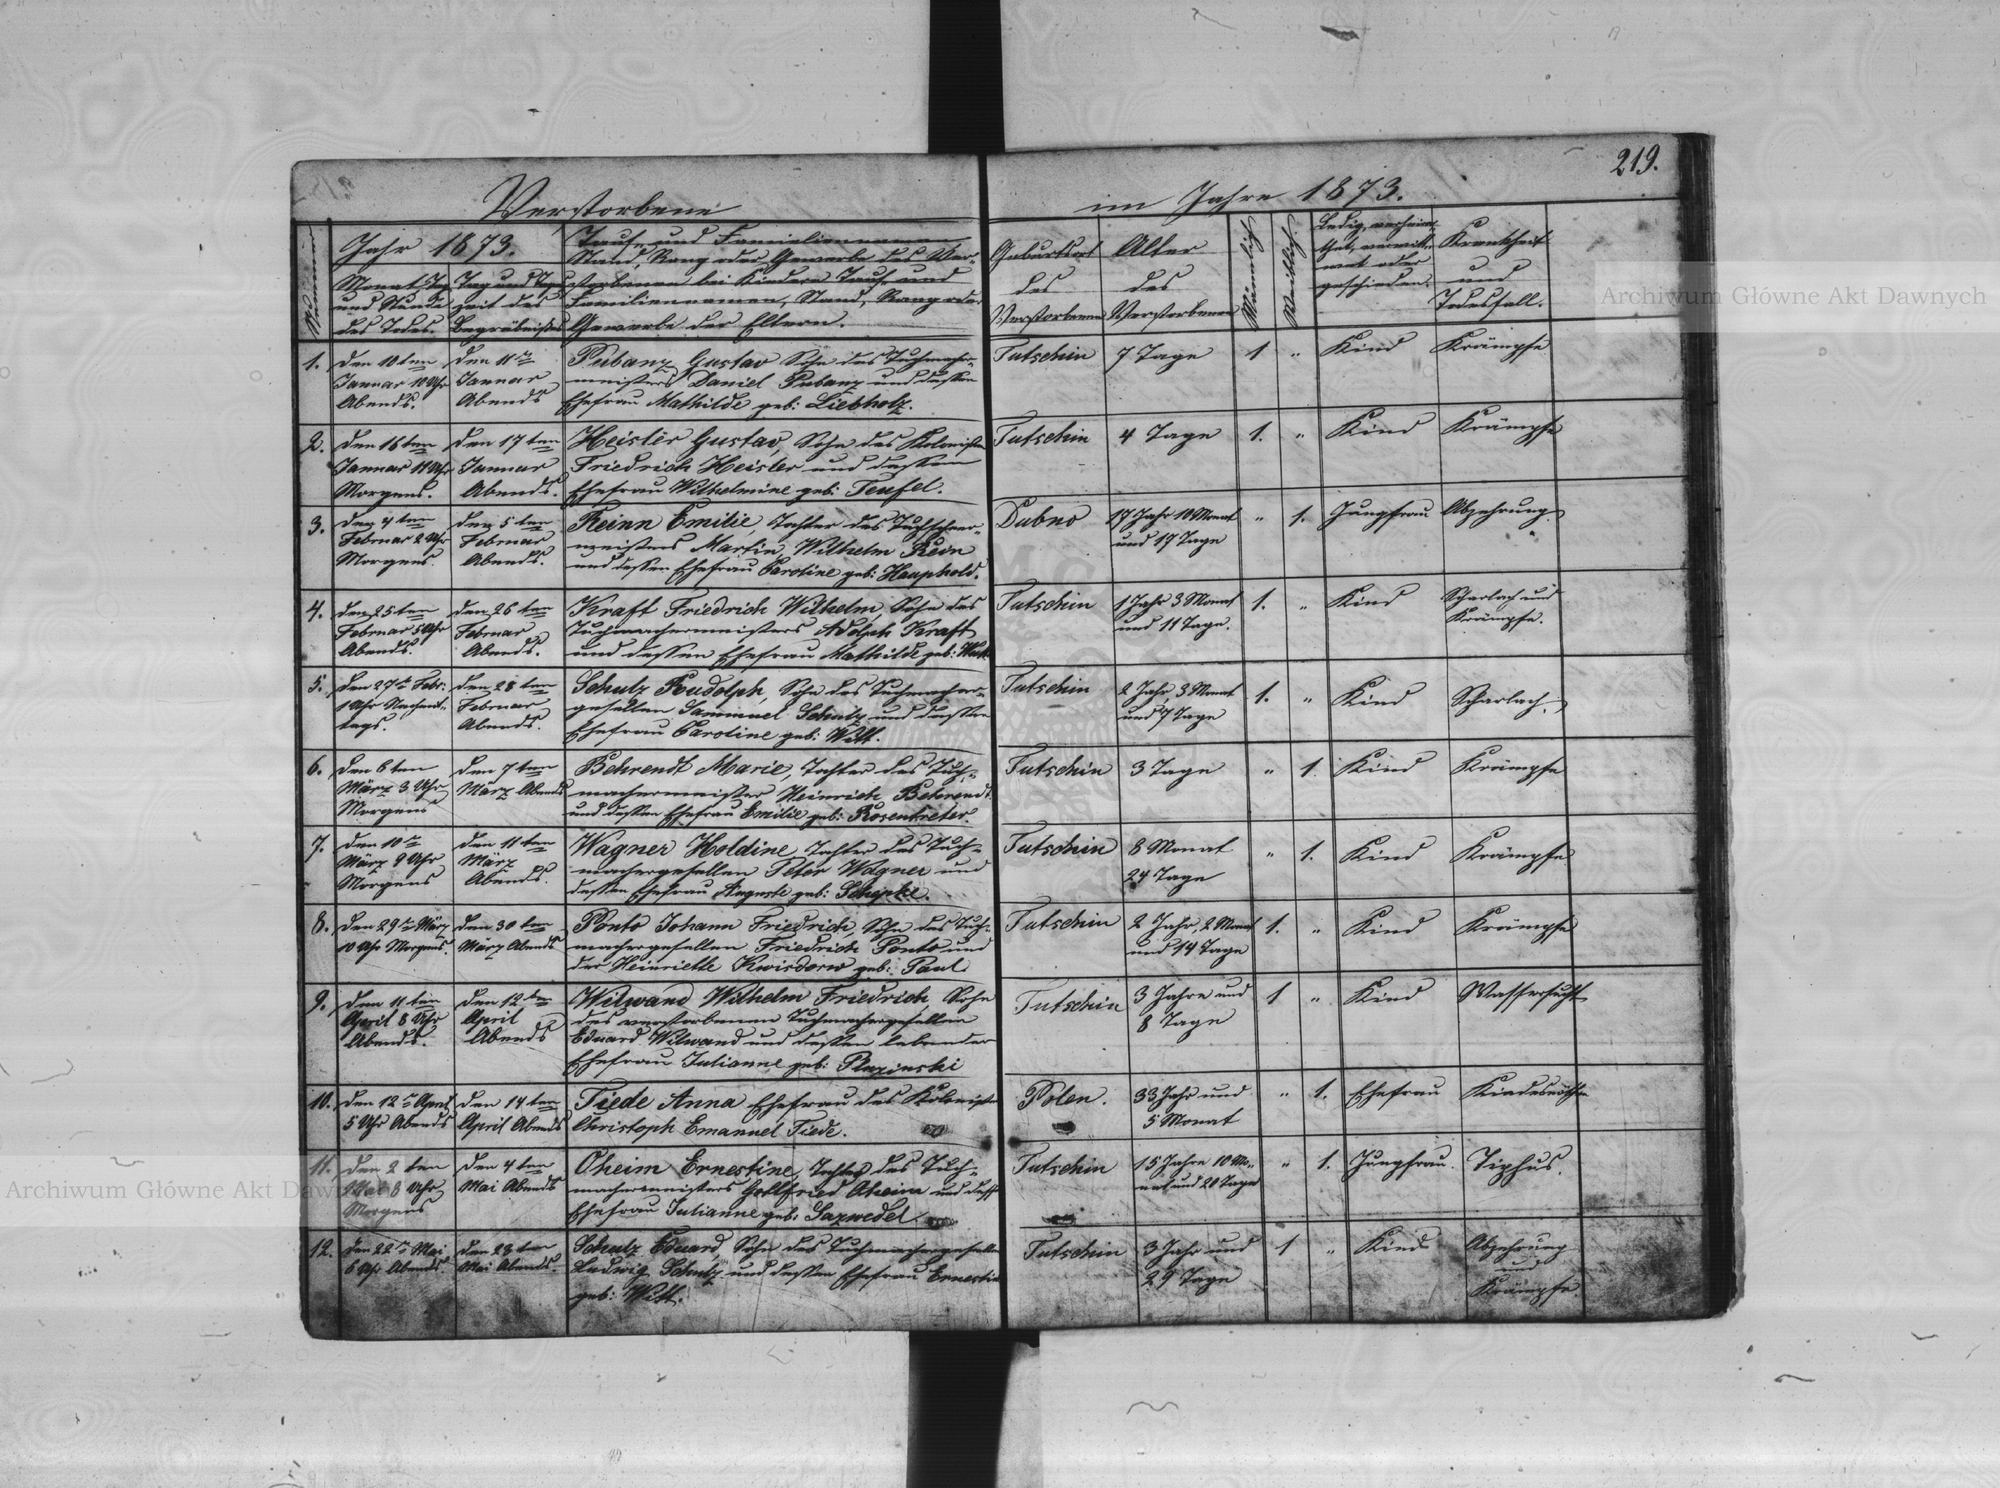 219.
Verstorbene im Jahre 1873.
Nummer
Jahr 1873.
Monat, Tag
und Stunde
des Todes.
Tag und Tages-
zeit des
Begräbnisses
Tauf- und Familiennamen
Stand, Rang oder Gewerbe des Ver-
storbenen bei Kindern Tauf- und
Familiennamen, Stand, Rang oder
Gewerbe der Eltern.
Geburtsort
des
Verstorbenen
Alter
des
Verstorbenen
Männlich
Weiblich.
Ledig, verheira-
thet, verwitt-
wet oder
geschieden.
Krankheit
und
Todesfall.
1.
den 10ten
Januar 10 Uhr
Abends.
den 11ten
Januar
Abends
Pubanz Gustav Sohn des Tuchmacher-
meisters Daniel Pubanz und dessen
Ehefrau Mathilde geb: Liebholz.
Tutschin
7 Tage
1
"
Kind
Krämpfe
2.
den 16ten
Januar 11 Uhr
Morgens.
den 17ten
Januar
Abends.
Heisler Gustav, Sohn des Kolonisten
Friedrich Heisler und dessen
Ehefrau Wilhelmine geb: Teufel.
Tutschin
4 Tage
1.
"
Kind
Krämpfe
3.
den 4ten
Februar 2 Uhr
Morgens.
den 5ten
Februar
Abends.
Reinn Emilie, Tochter des Tuchscheer-
meisters Martin Wilhelm Rein
und dessen Ehefrau Caroline geb: Hauphold.
Dubno
17 Jahr 10 Monat
und 17 Tage
"
1.
Jungfrau
Abzehrung.
4.
den 25ten
Februar 5 Uhr
Abends.
den 26ten
Februar
Abends.
Kraft Friedrich Wilhelm Sohn des
Tuchmachermeisters Adolph Kraft
und dessen Ehefrau Mathilde geb:
Tutschin
1 Jahr 3 Monat
und 11 Tage.
1.
"
Kind
Scharlach und
Krämpfe.
5.
den 27ten Febr:
1 Uhr Nachmit-
tags.
den 28ten
Februar
Abends.
Schulz Roudolph, Sohn des Tuchmacher-
gesellen Sammuel Schulz und dessen
Ehefrau Caroline geb: Witt.
Tutschin
2 Jahr, 3 Monat
und 7 Tage
1.
"
Kind
Scharlach.
6.
den 6ten
März 3 Uhr
Morgens
den 7ten
März Abends
Behrendt Marie, Tochter des Tuch-
machermeister Heinrich Behrendt
und dessen Ehefrau Emilie geb: Rosentreter.
Tutschin
3 Tage
"
1.
Kind
Krämpfe
7.
den 10ten
März 9 Uhr
Morgens
den 11ten
März
Abends.
Wagner Holdine Tochter des Tuch-
machergesellen Peter Wagner und
dessen Ehefrau Auguste geb: Schepke.
Tutschin
8 Monat
24 Tage
"
1.
Kind
Krämpfe
8.
den 29ten März
10 Uhr Morgens.
den 30ten
März Abends
Ponto Johann Friedrich, Sohn des Tuch-
machergesellen Friedrich Ponto und
der Heinriette Kwisdorw geb: Paul.
Tutschin
2 Jahr, 2 Monat
und 14 Tage
1.
"
Kind
Krämpfe
9.
den 11ten
April 8 Uhr
Abends.
den 12ten
April
Abends
Witwand Wilhelm Friedrich, Sohn
des verstorbenen Tuchmachergesellen
Eduard Witwand und dessen lebender
Ehefrau Julianne geb: Plazinski
Tutschin
3 Jahre und
8 Tage
1
"
Kind
Wassersucht
10.
den 12ten April
5 Uhr Abends
den 14ten
April Abends
Tiede Anna Ehefrau des Kolonisten
Christoph Emanuel Tiede.
Polen.
33 Jahr und
5 Monat
"
1.
Ehefrau
Kindesnöthen
11.
den 2ten
Mai 8 Uhr
Morgens
den 4ten
Mai Abends
Oheim Ernestine, Tochter des Tuch-
machermeisters Gottfried Oheim und dess
Ehefrau Julianne geb: Sazwedel
Tutschin
15 Jahre 10 Mo-
nat und 20 Tage
"
1.
Jungfrau.
Tiphus.
12.
den 22ten Mai
6 Uhr Abends.
den 23ten
Mai Abends.
Schulz Eduard, Sohn des Tuchmachergesellen
Ludwig Schulz und dessen Ehefrau Ernestine
geb: Witt.
Tutschin
3 Jahr und
29 Tage
1
"
Kind
Abzehrung
und
Krämpfe.
Archiwum Główne Akt Dawnych
Archiwum Główne Akt Dawnych